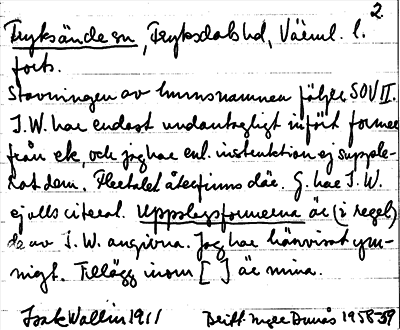 2.
Fryksände sn, Fryksdals hd, Värml. l.
forts.
Stavningen av hmnsnamnen följer SOV II.
I.W. har endast undantagsligt infört former
från ek, och jag har enl. instruktion ej supple-
rat dem. Flertalet återfinns där. G. har I.W.
ej alls citerat. Uppslagsformerna är (i regel)
de av I.W. angivna. Jag har hänvisat ym-
nigt. Tillägg inom [ ] är mina.
Isak Wallin 1911 Britt Inger 1958-59